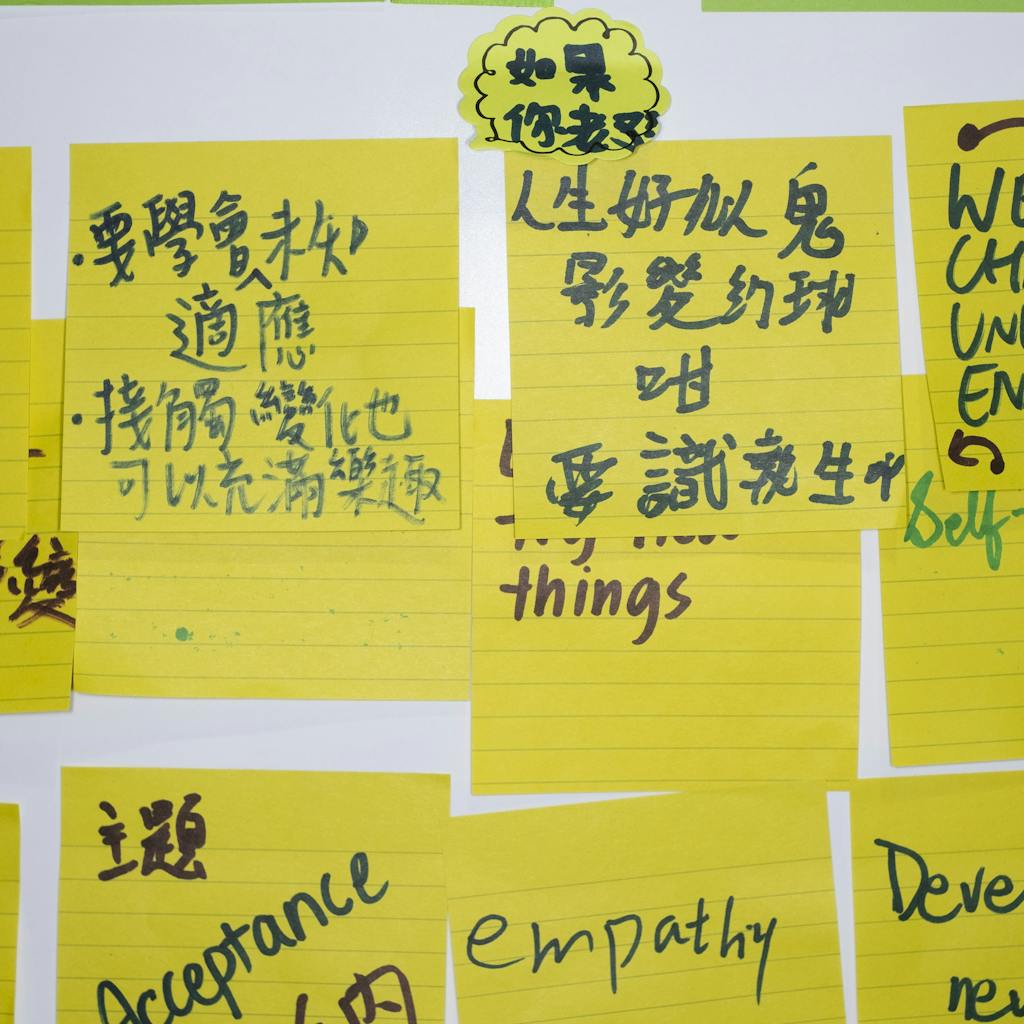 如果
你老了!
·要學會未知
適應
·接觸變化也
可以充滿樂趣
人生好似鬼
影變幻球
咁
要識執生
WE
UN
EN
Self-
變
things
主題
Acceptance
內
empathy
Deve
new